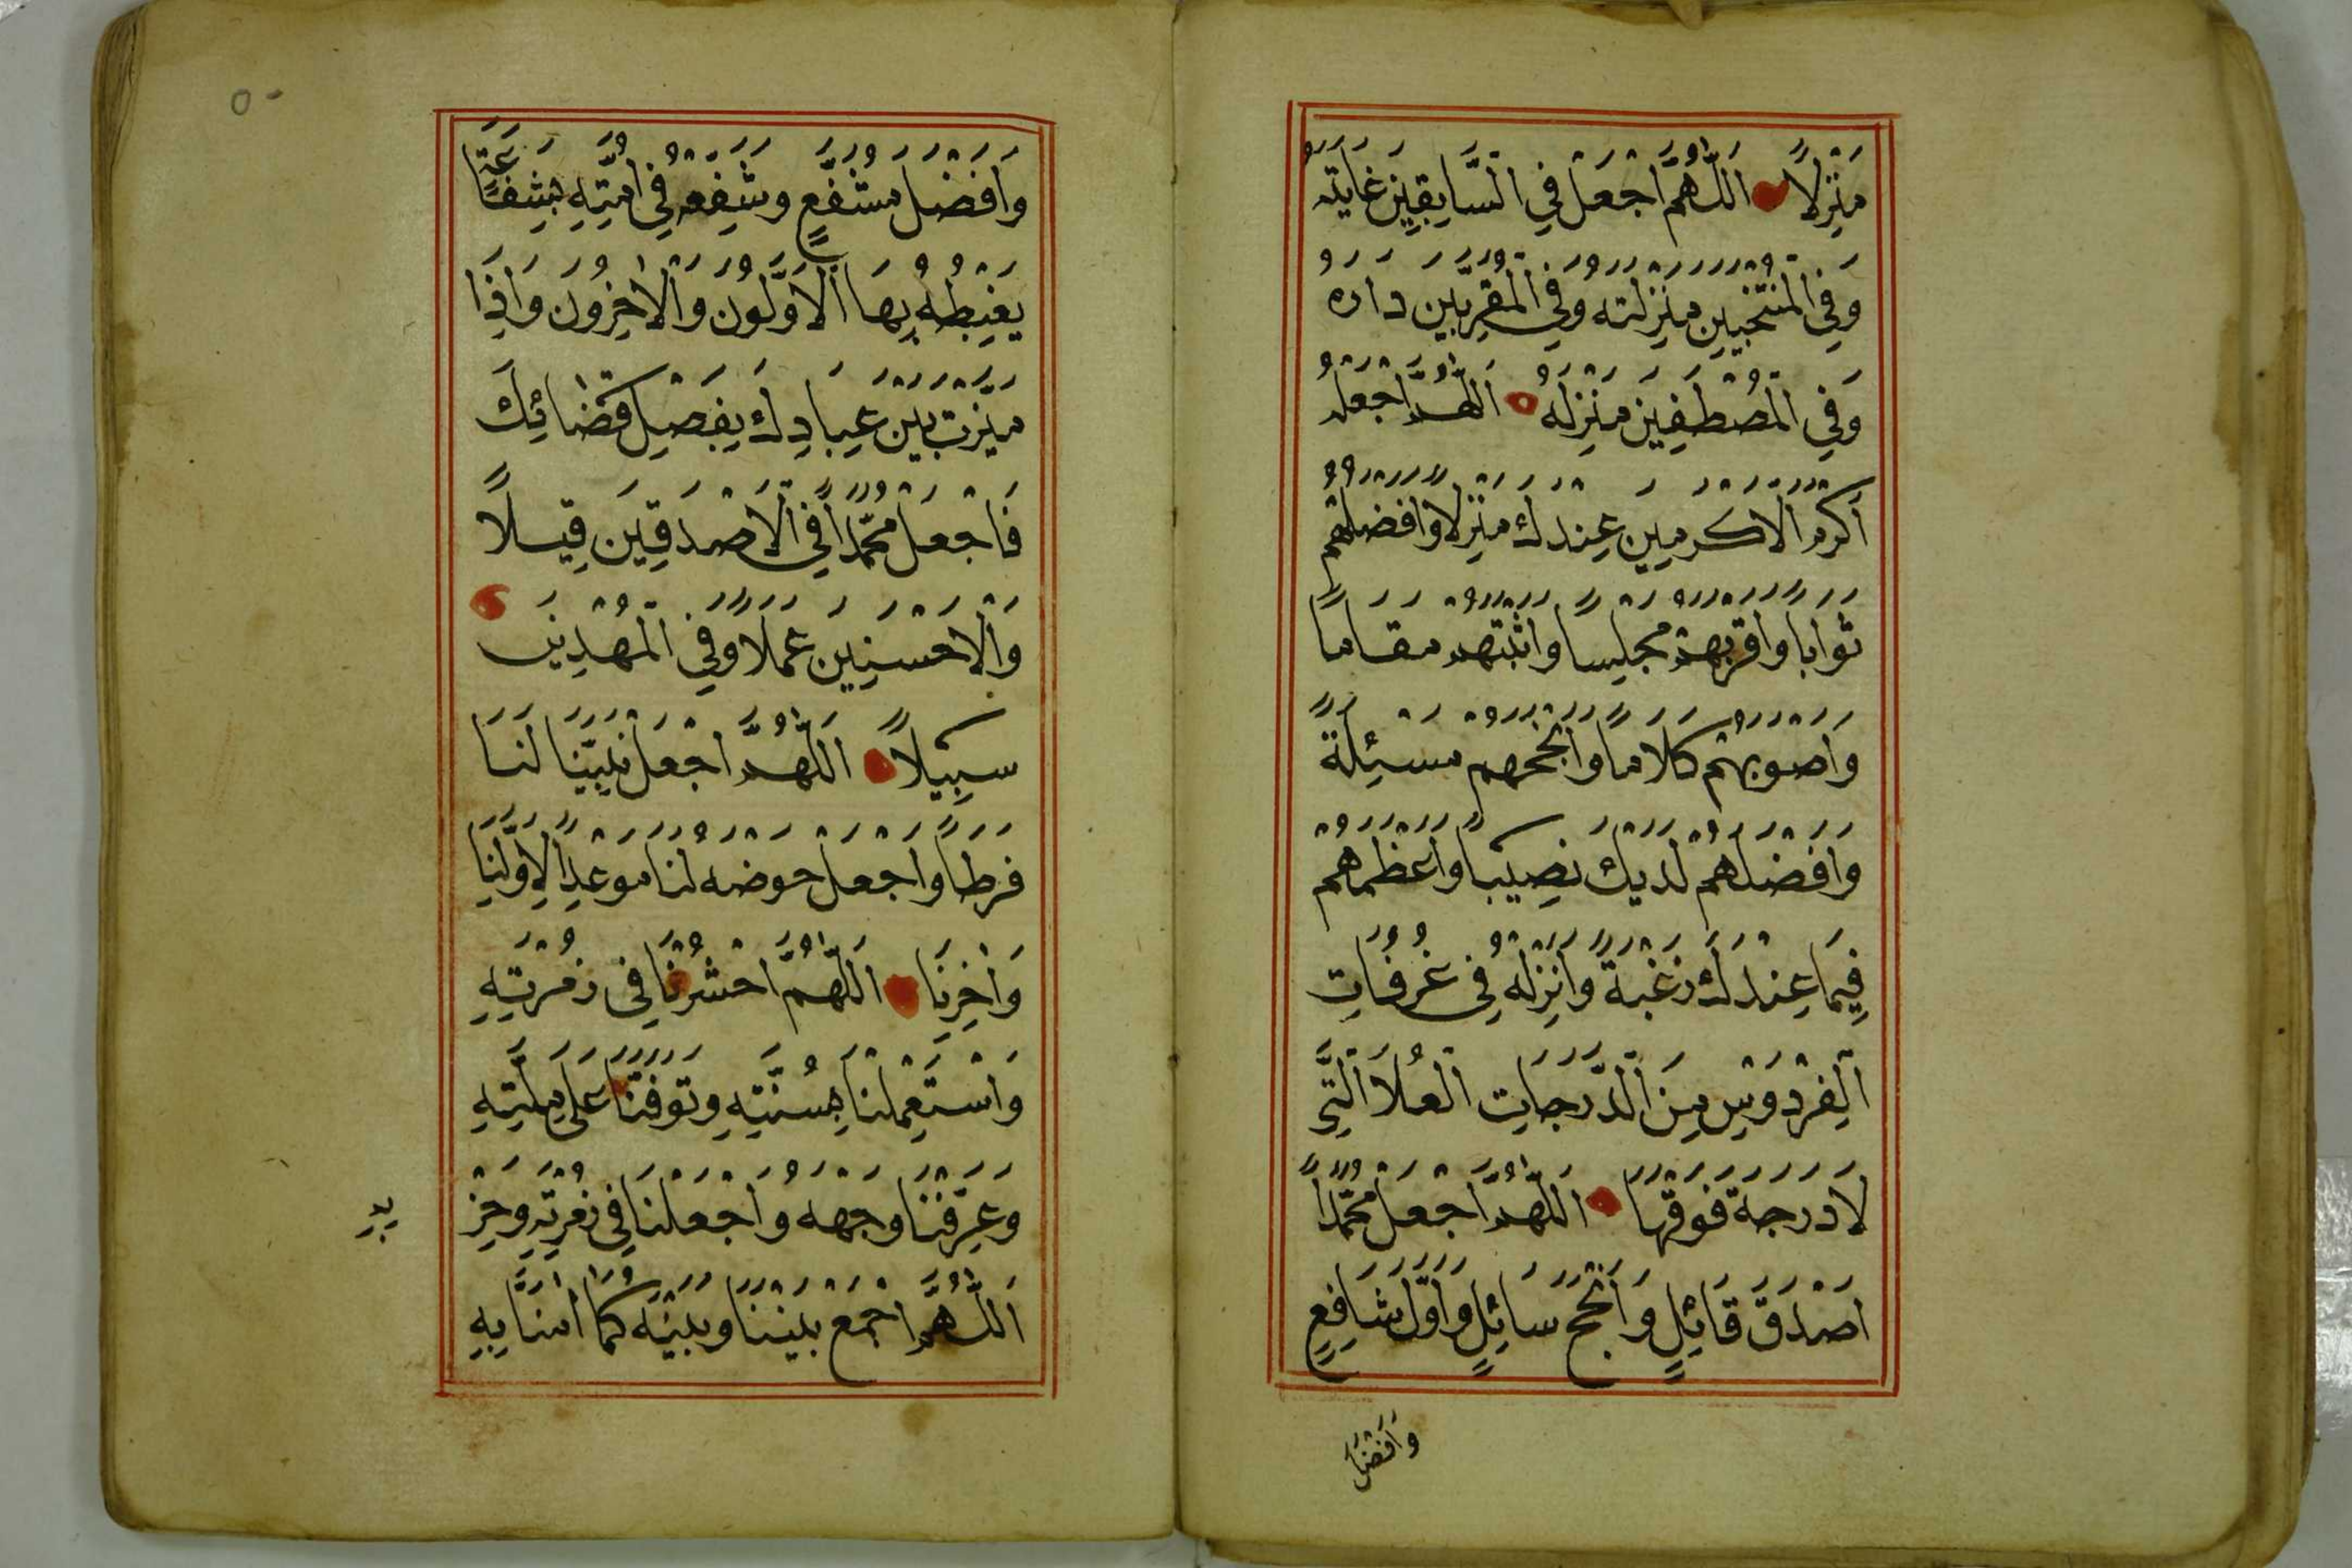 مَنْزِلًا اَللّٰهُمَّ اجْعَلْ فِي السَّابِقِيْنَ غَايَتَهُ
وَفِي الْمُنْتَخَبِيْنَ مَنْزِلَتَهُ وَفِي الْمُقَرَّبِيْنَ دَارَهُ
وَفِي الْمُصْطَفِيْنَ مَنْزِلَهُ اَللّٰهُمَّ اجْعَلْهُ
اَكْرَمَ الْاَكْرَمِيْنَ عِنْدَكَ مَنْزِلًا وَاَفْضَلَهُمْ
ثَوَابًا وَاَقْرَبَهُمْ مَجْلِسًا وَاَثْبَتَهُمْ مَقَامًا
وَاَصْوَبَهُمْ كَلَامًا وَاَنْجَحَهُمْ مَسْئَلَةً
وَاَفْضَلَهُمْ لَدَيْكَ نَصِيْبًا وَاَعْظَمَهُمْ
فِيْمَا عِنْدَكَ رَغْبَةً وَاَنْزِلْهُ فِي غُرُفَاتِ
الْفِرْدَوْسِ مِنَ الدَّرَجَاتِ الْعُلَا الَّتِي
لَا دَرَجَةَ فَوْقَهَا اَللّٰهُمَّ اجْعَلْ مُحَمَّدًا
اَصْدَقَ قَائِلٍ وَاَنْجَحَ سَائِلٍ وَاَوَّلَ شَافِعٍ
وَاَفْضَلَ
٥٠
وَاَفْضَلَ مُشَفَّعٍ وَشَفِّعْهُ فِي اُمَّتِهِ بِشَفَاعَةٍ
يَغْبِطُهُ بِهَا الْاَوَّلُوْنَ وَالْاٰخِرُوْنَ وَاِذَا
مَيَّزْتَ بَيْنَ عِبَادِكَ بِفَصْلِ قَضَائِكَ
فَاجْعَلْ مُحَمَّدًا فِي الْاَصْدَقِيْنَ قِيْلًا
وَالْاَحْسَنِيْنَ عَمَلًا وَفِي الْمَهْدِيِّيْنَ
سَبِيْلًا اَللّٰهُمَّ اجْعَلْ نَبِيَّنَا لَنَا
فَرَطًا وَاجْعَلْ حَوْضَهُ لَنَا مَوْعِدًا لِاَوَّلِنَا
وَاٰخِرِنَا اَللّٰهُمَّ احْشُرْنَا فِي زُمْرَتِهِ
وَاسْتَعْمِلْنَا بِسُنَّتِهِ وَتَوَفَّنَا عَلٰى مِلَّتِهِ
وَعَرِّفْنَا وَجْهَهُ وَاجْعَلْنَا فِي زُمْرَتِهِ وَحِزْ
بِهِ
اَللّٰهُمَّ اجْمَعْ بَيْنَنَا وَبَيْنَهُ كَمَا اٰمَنَّا بِهِ